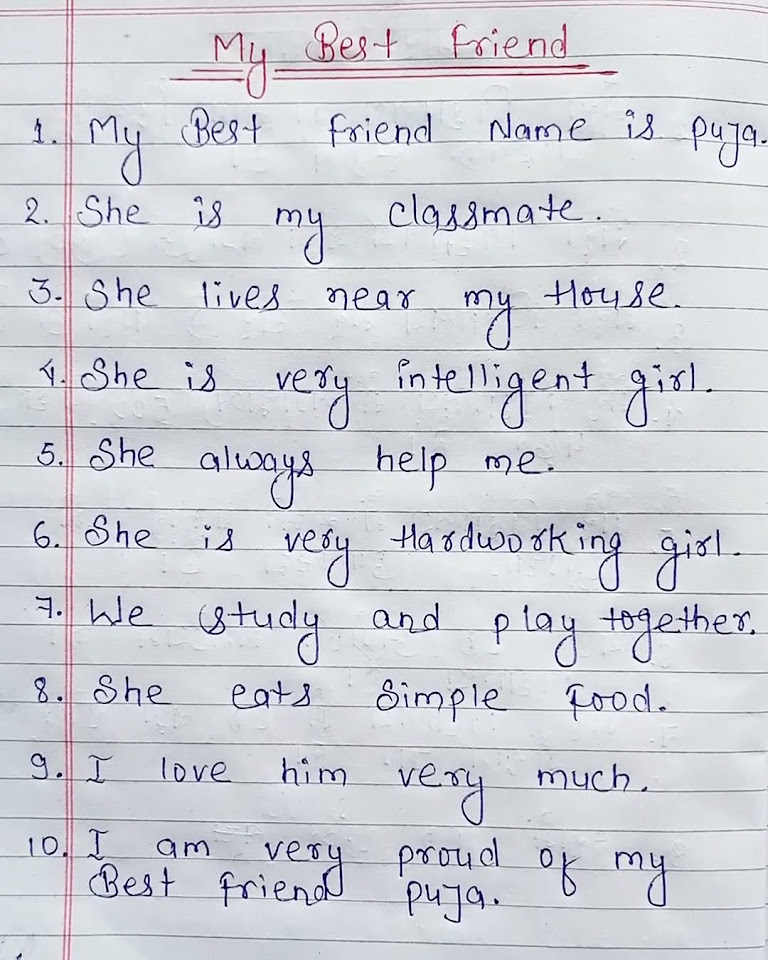 My Best Friend
1. My Best friend Name is puja.
2. She is my classmate.
3. She lives near my House.
4. She is very intelligent girl.
5. She always help me.
6. She is very Hardworking girl.
7. We study and play together.
8. She eats Simple Food.
9. I love him very much.
10. I am very proud of my
Best friend puja.